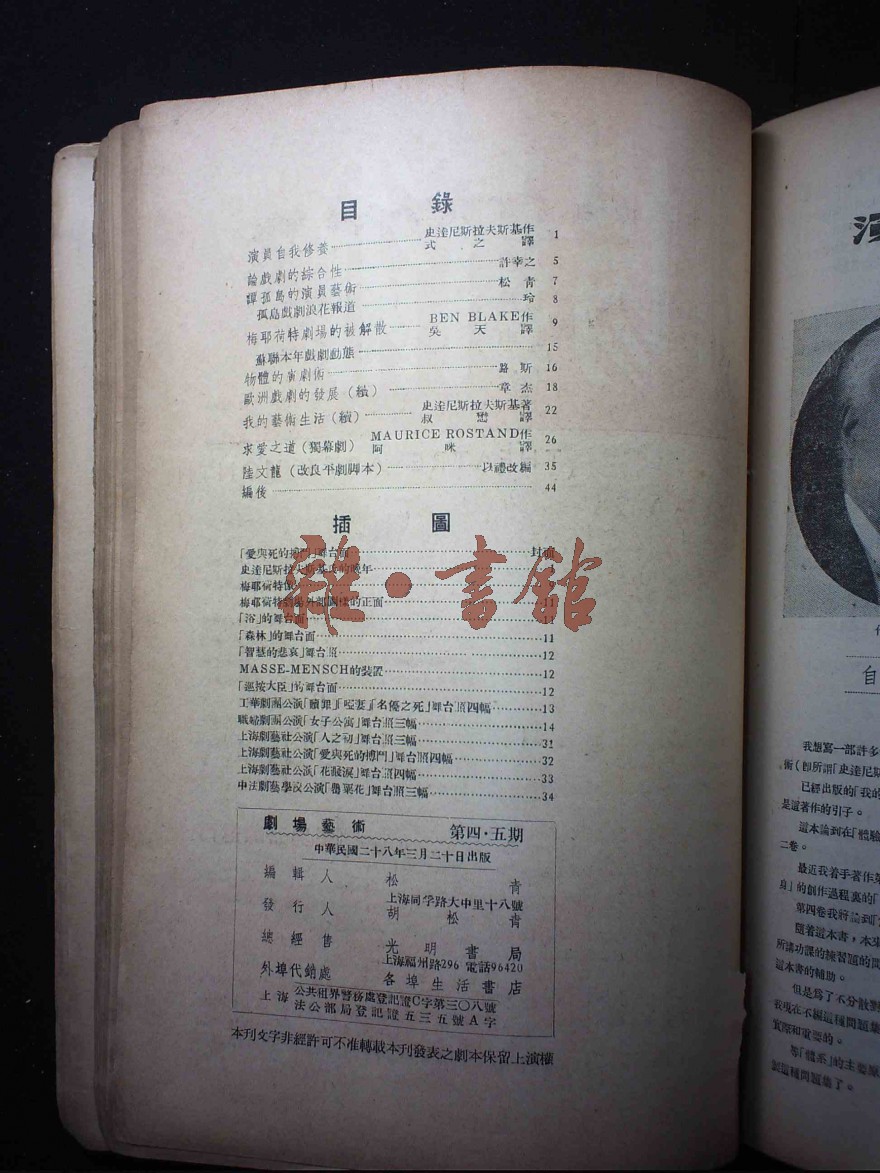 目錄
演員自我修養 史達尼斯拉夫斯基作 式之譯 1
論戲劇的綜合性 許幸之 5
譚孤島的演員藝術 松青 7
孤島戲劇浪花報道 玲 8
梅耶荷特劇場的被解散 BEN BLAKE作 吳天譯 9
蘇聯本年戲劇動態 15
物體的演劇術 路斯 16
歐洲戲劇的發展(續) 章杰 18
我的藝術生活(續) 史達尼斯拉夫斯基著 叔懋譯 22
求愛之道(獨幕劇) MAURICE ROSTAND作 阿咪譯 26
陸文龍(改良平劇脚本) 以禮改編 35
編後 44
插圖
「愛與死的搏鬥」舞台面 封面
史達尼斯拉夫斯基氏的晚年
梅耶荷特像
梅耶荷特劇場外部圖樣的正面 11
「浴」的舞台面 11
「森林」的舞台面 11
「智慧的悲哀」舞台照 12
MASSE-MENSCH的裝置 12
「巡按大臣」的舞台面 12
工華劇團公演「贖罪」「啞妻」「名優之死」舞台照四幅 13
職婦劇團公演「女子公寓」舞台照三幅 14
上海劇藝社公演「人之初」舞台照三幅 31
上海劇藝社公演「愛與死的搏鬥」舞台照四幅 32
上海劇藝社公演「花濺淚」舞台照四幅 33
中法劇藝學校公演「罌粟花」舞台照三幅 34
雜·書館
劇場藝術 第四·五期
中華民國二十八年三月二十日出版
編輯人 松青
上海同孚路大中里十八號
發行人 胡松青
總經售 光明書局
上海福州路296 電話96420
外埠代銷處 各埠生活書店
上海 公共租界警務處登記證C字第三〇八號
法公部局登記證五三五號A字
本刊文字非經許可不准轉載本刊發表之劇本保留上演權
自
我想寫一部許多
術(即所謂「史達尼斯
已經出版的「我的
是這著作的引子。
這本論到在「體驗
二卷。
最近我着手著作第
身」的創作過程裏的「
第四卷我將論到「
隨着這本書,本來
所講功課的練習題的問
這本書的補助。
但是爲了不分散對
我現在不編這種問題集
實際和重要的。
等「體系」的主要原
製這種問題集了。